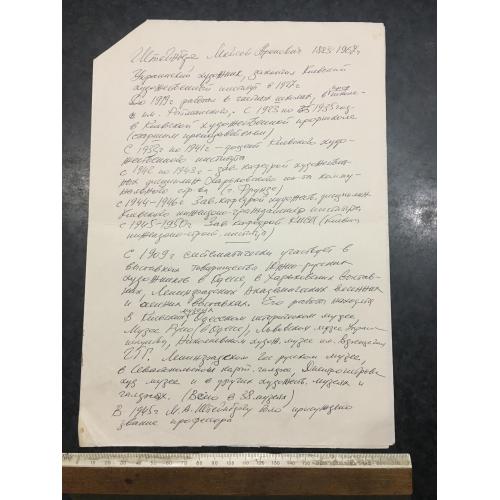 Штейнберг Моисей Аронович 1883-1968г
Украинский художник, закончил Киевский
художественный институт в 1927г
До 1919г работал в частных школах,
им. С 1923 по 1935 год
в Киевской художественной профшколе
(старшим преподавателем)
С 1932г по 1941г - доцент Киевского худо-
жественного института
с 1942 по 1943г - зав. кафедрой художествен-
ных дисциплин Харьковского ин-та комму-
нального стр-ва (г. Фрунзе)
с 1944-1946г Зав. кафедрой художеств. дисциплин
Киевского инженерно-гражданского института,
с 1945-1950г Зав кафедрой КИСИ (Киевск.
инженерно-строит. института)
С 1909г систематически участвует в
выставках товарищества Южно-русских
художников в Одессе, в Харьковских выстав-
ках, Ленинградских Академических весенних
и осенних выставках. Его работы находятся
в Киевском музее, Одесском историческом музее,
Музее Руссо (в Одессе), Львовском музее Украин.
искусства, Николаевском худож. музее им. Верещагина
Ленинградском гос русском музее,
в Севастопольской карт. галерее, Днепропетровск.
худ музее и в других художеств. музеях и
галереях. (Всего в 38 музеях)
В 1945г М.А. Штейнбергу было присуждено
звание профессора